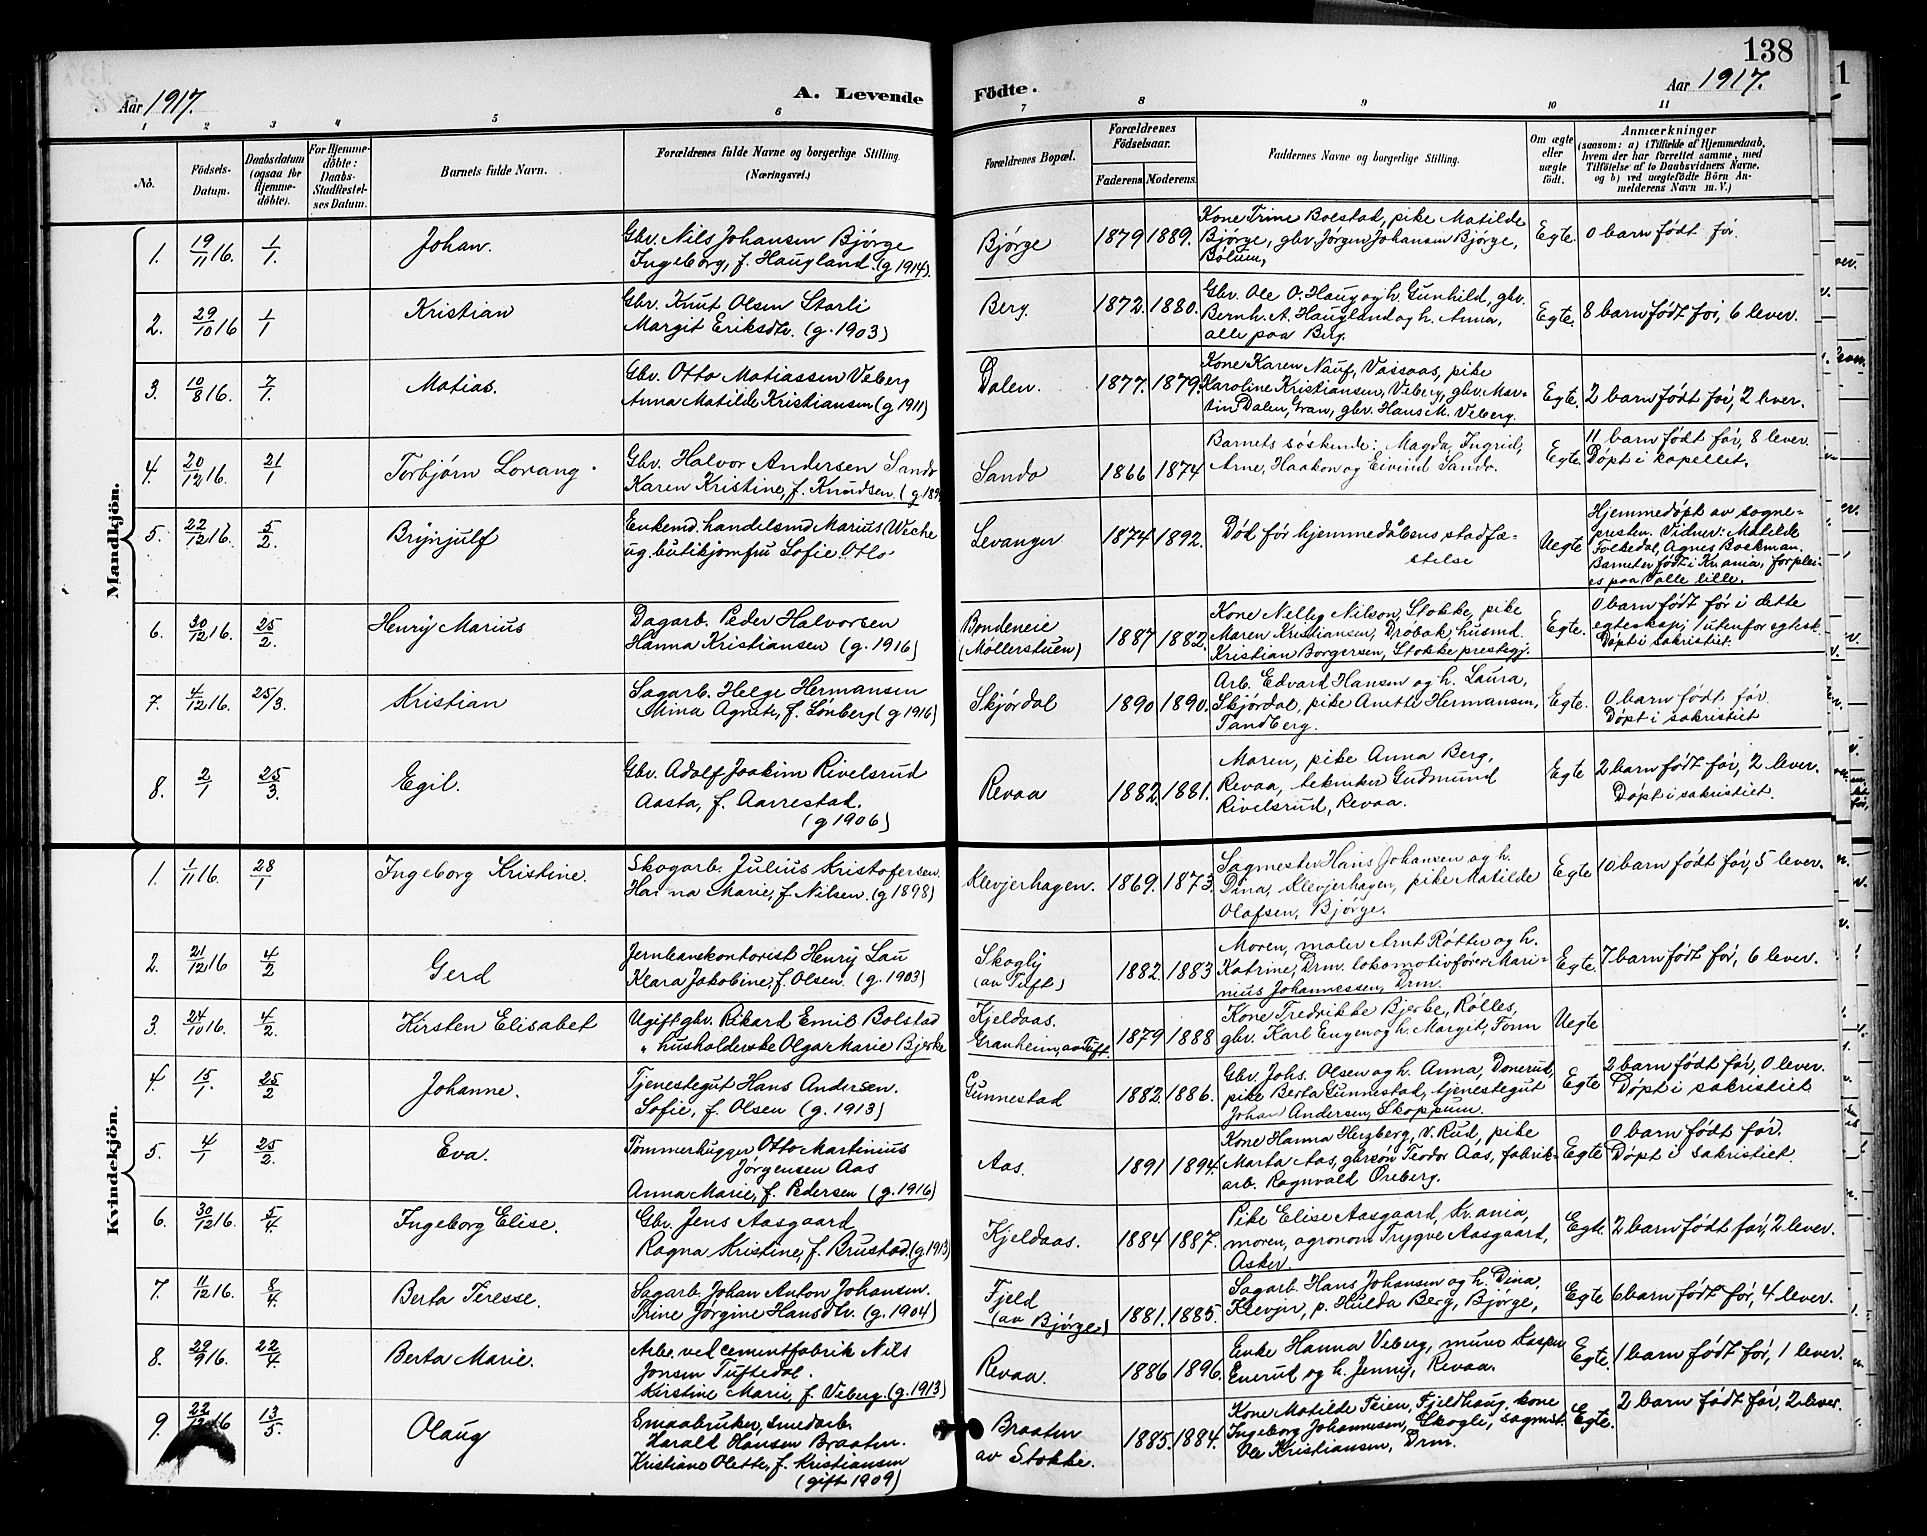 138
Aar 1917.
A. Levende
Födte.
Aar 1917.
1 2 3 4 5 6 7 8 9 10 11
No.
Födsels-Datum.
Daabsdatum (ogsaa for Hjemmedöbte).
For Hjemmedöbte: Daabs-Stadfæstelses Datum.
Barnets fulde Navn.
Forældrenes fulde Navne og borgerlige Stilling. (Næringsvei.)
Forældrenes Bopæl.
Forældrenes Födselsaar.
Faderens. Moderens.
Faddernes Navne og borgerlige Stilling.
Om ægte eller uægte födt.
Anmærkninger
(saasom: a) i Tilfælde af Hjemmedaab, hvem der har forrettet samme, med Tilföielse af to Daabsvidners Navne. og b) ved uægtefödte Börn Anmelderens Navn m. V.)
Mandkjön.
1. 19/11 16. 1/1. Johan. Gbr. Nils Johansen Bjørge
Ingeborg, f. Haugland. (g 1914).
Bjørge 1879 1889. Kone Trine Bolstad, pike Matilde
Bjørge, gbr. Jørgen Johansen Bjørge,
Egte. 0 barn født før.
2. 29/10 16 1/1 Kristian Gbr. Knut Olsen Storli
Margit Eriksdtr. (g. 1903)
Berg. 1872. 1880. Gbr. Ole O. Haug og h. Gunhild, gbr.
Bernh. A. Haugland og h. Anna,
alle paa Berg.
Egte. 8 barn født før, 6 lever.
3. 10/8 16. 7/1. Matias. Gbr. Otto Matiassen Veberg
Anna Matilde Kristiansen (g 1911)
Dalen. 1877. 1879. Kone Karen Nauf, Vassaas, pike
Karoline Kristiansen, Veberg, gbr. Mar-
tin Dalen, Gran, gbr. Hans M. Veberg.
Egte. 2 barn født før, 2 lever.
4. 20/12 16. 21/1 Torbjørn Lorang. Gbr. Halvor Andersen Sando
Karen Kristine, f. Knudsen. (g 189
Sando 1866 1874 Barnets søskende: Magda, Ingrid,
Arne, Haakon og Eivind Sando.
Egte. 11 barn født før, 8 lever.
Døpt i kapellet.
5. 22/12 16. 5/2. Brynjulf Enkemd. handelsmd Marius Weche
ug. butikjomfru Sofie Otto
Levanger 1874 1892. Død før hjemmedåbens stadfæ-
stelse
Uegte Hjemmedøpt av sogne-
presten. Vidner: Matilde
Folkedal, Agnes Bockman.
Barnet er født i Kr.ania, forplei-
es paa Valle lille.
6. 30/12 16. 25/2. Henry Marius Dagarb. Peder Halvorsen
Hanna Kristiansen (g. 1916)
Bondeneie
(Møllerstuen) 1887 1882. Kone Nelly Nilson, Stokke, pike
Maren Kristiansen, Drøbak, husmd.
Kristian Borgersen, Stokke prestegj.
Egte. 0 barn født før i dette
egteskap; 1 utenfor egtesk.
Døpt i sakristiet.
7. 4/12 16. 25/3. Kristian Sagarb. Helge Hermansen
Mina Agnete, f. Lønberg (g 1916)
Skjørdal 1890 1890. Arb. Edvard Hansen og h. Laura,
Skjørdal, pike Anette Hermansen,
Tandberg.
Egte. 0 barn født før.
Døpt i sakristiet
8. 2/1 25/3. Egil. Gbr. Adolf Joakim Rivelsrud
Aasta, f. Aarrestad.
(g 1906)
Revaa 1882. 1881. Moren, pike Anna Berg,
Revaa, tekniker Gudmund
Rivelsrud, Revaa.
Egte 2 barn født før, 2 lever.
Døpt i sakristiet.
Kvindekjön.
1. 1/11 16. 28/1 Ingeborg Kristine. Skogarb. Julius Kristofersen.
Hanna Marie, f. Nilsen. (g 1898)
Klevjerhagen. 1869. 1873. Sagmester Hans Johansen og h.
Dina, Klevjerhagen, pike Matilde
Olafsen, Bjørge.
Egte 10 barn født før, 5 lever.
2. 21/12 16 4/2 Gerd Jernbanekontorist Henry Lau
Klara Jakobine, f. Olsen. (g. 1903)
Skogly
(av Tuft) 1882. 1883 Moren, maler Arnt Røtter og h.
Katrine, Drm. lokomotivfører Mari-
nius Johannessen, Drm.
Egte. 7 barn født før, 6 lever.
3. 24/10 16. 4/2. Kirsten Elisabet Ugift gbr. Rikard Emil Bolstad
" husholderske Olga Marie Bjerke
Kjeldaas.
Granheim, av Tuft 1879 1888 Kone Fredrikke Bjerke, Rølles,
gbr. Karl Eugen og h. Margit, Fonn
Uegte
4. 15/1. 25/2 Johanne. Tjenestegut Hans Andersen.
Sofie, f. Olsen (g. 1913)
Gunnestad 1882. 1886. Gbr. Johs. Olsen og h. Anna, Donerud,
pike Berta Gunnestad, tjenestegut
Johan Andersen, Skoppum.
Egte 2 barn født før, 0 lever.
Døpt i sakristiet
5. 4/1 25/2. Eva. Tømmerhugger Otto Martinius
Jørgensen Aas
Anna Marie, f. Pedersen (g. 1916)
Aas. 1891 1894. Kone Hanna Herzberg, V. Rud, pike
Marta Aas, gbrsøn Teodor Aas, fabrik-
arb. Ragnvald Øreberg.
Egte 0 barn født før.
Døpt i sakristiet.
6. 30/12 16. 5/4. Ingeborg Elise. Gbr. Jens Aasgaard
Ragna Kristine, f. Brustad. (g. 1913)
Kjeldaas. 1884 1887. Pike Elise Aasgaard, Kr.ania,
moren, agronom Trygve Aasgaard,
Asker.
Egte. 2 barn født før, 2 lever.
7. 11/12 16. 8/4. Berta Teresse. Sagarb. Johan Anton Johansen.
Trine Jørgine Hansdtr. (g. 1904)
Fjeld
(av Bjørge) 1881. 1885. Sagarb. Hans Johansen og h. Dina,
Klevjer, p. Hulda Berg, Bjørge,
Egte 6 barn født før, 4 lever.
8. 29/9 16. 22/4. Berta Marie. Arb. ved cementfabrik Nils
Jonsen Tuftedal.
Kirstine Marie, f. Veberg. (g. 1913)
Revaa. 1886 1896. Enke Hanna Veberg, murer Kasper
Enerud og h. Jenny, Revaa.
Egte. 1 barn født før, 1 lever.
9. 22/12 16 13/5. Olaug Smaabruker, smedarb.
Harald Hansen Braaten.
Kristiane Olette, f. Kristiansen
(gift 1909)
Braaten
av Stokke. 1885. 1884. Kone Matilde Teien, Fjeldhaug, kone
Ingeborg Johannesen, Skogli, sagmst.
Ole Kristiansen, Drm.
Egte. 2 barn født før, 2 lever.